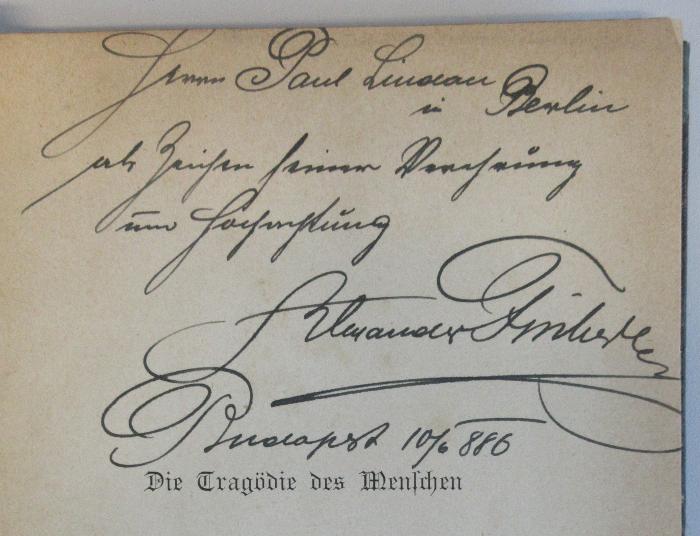 Herrn Paul Lindau
in Berlin
als Zeichen seiner Verehrung
und Hochachtung
Alexander Fischer
Budapest 10/6 886
Die Tragödie des Menschen